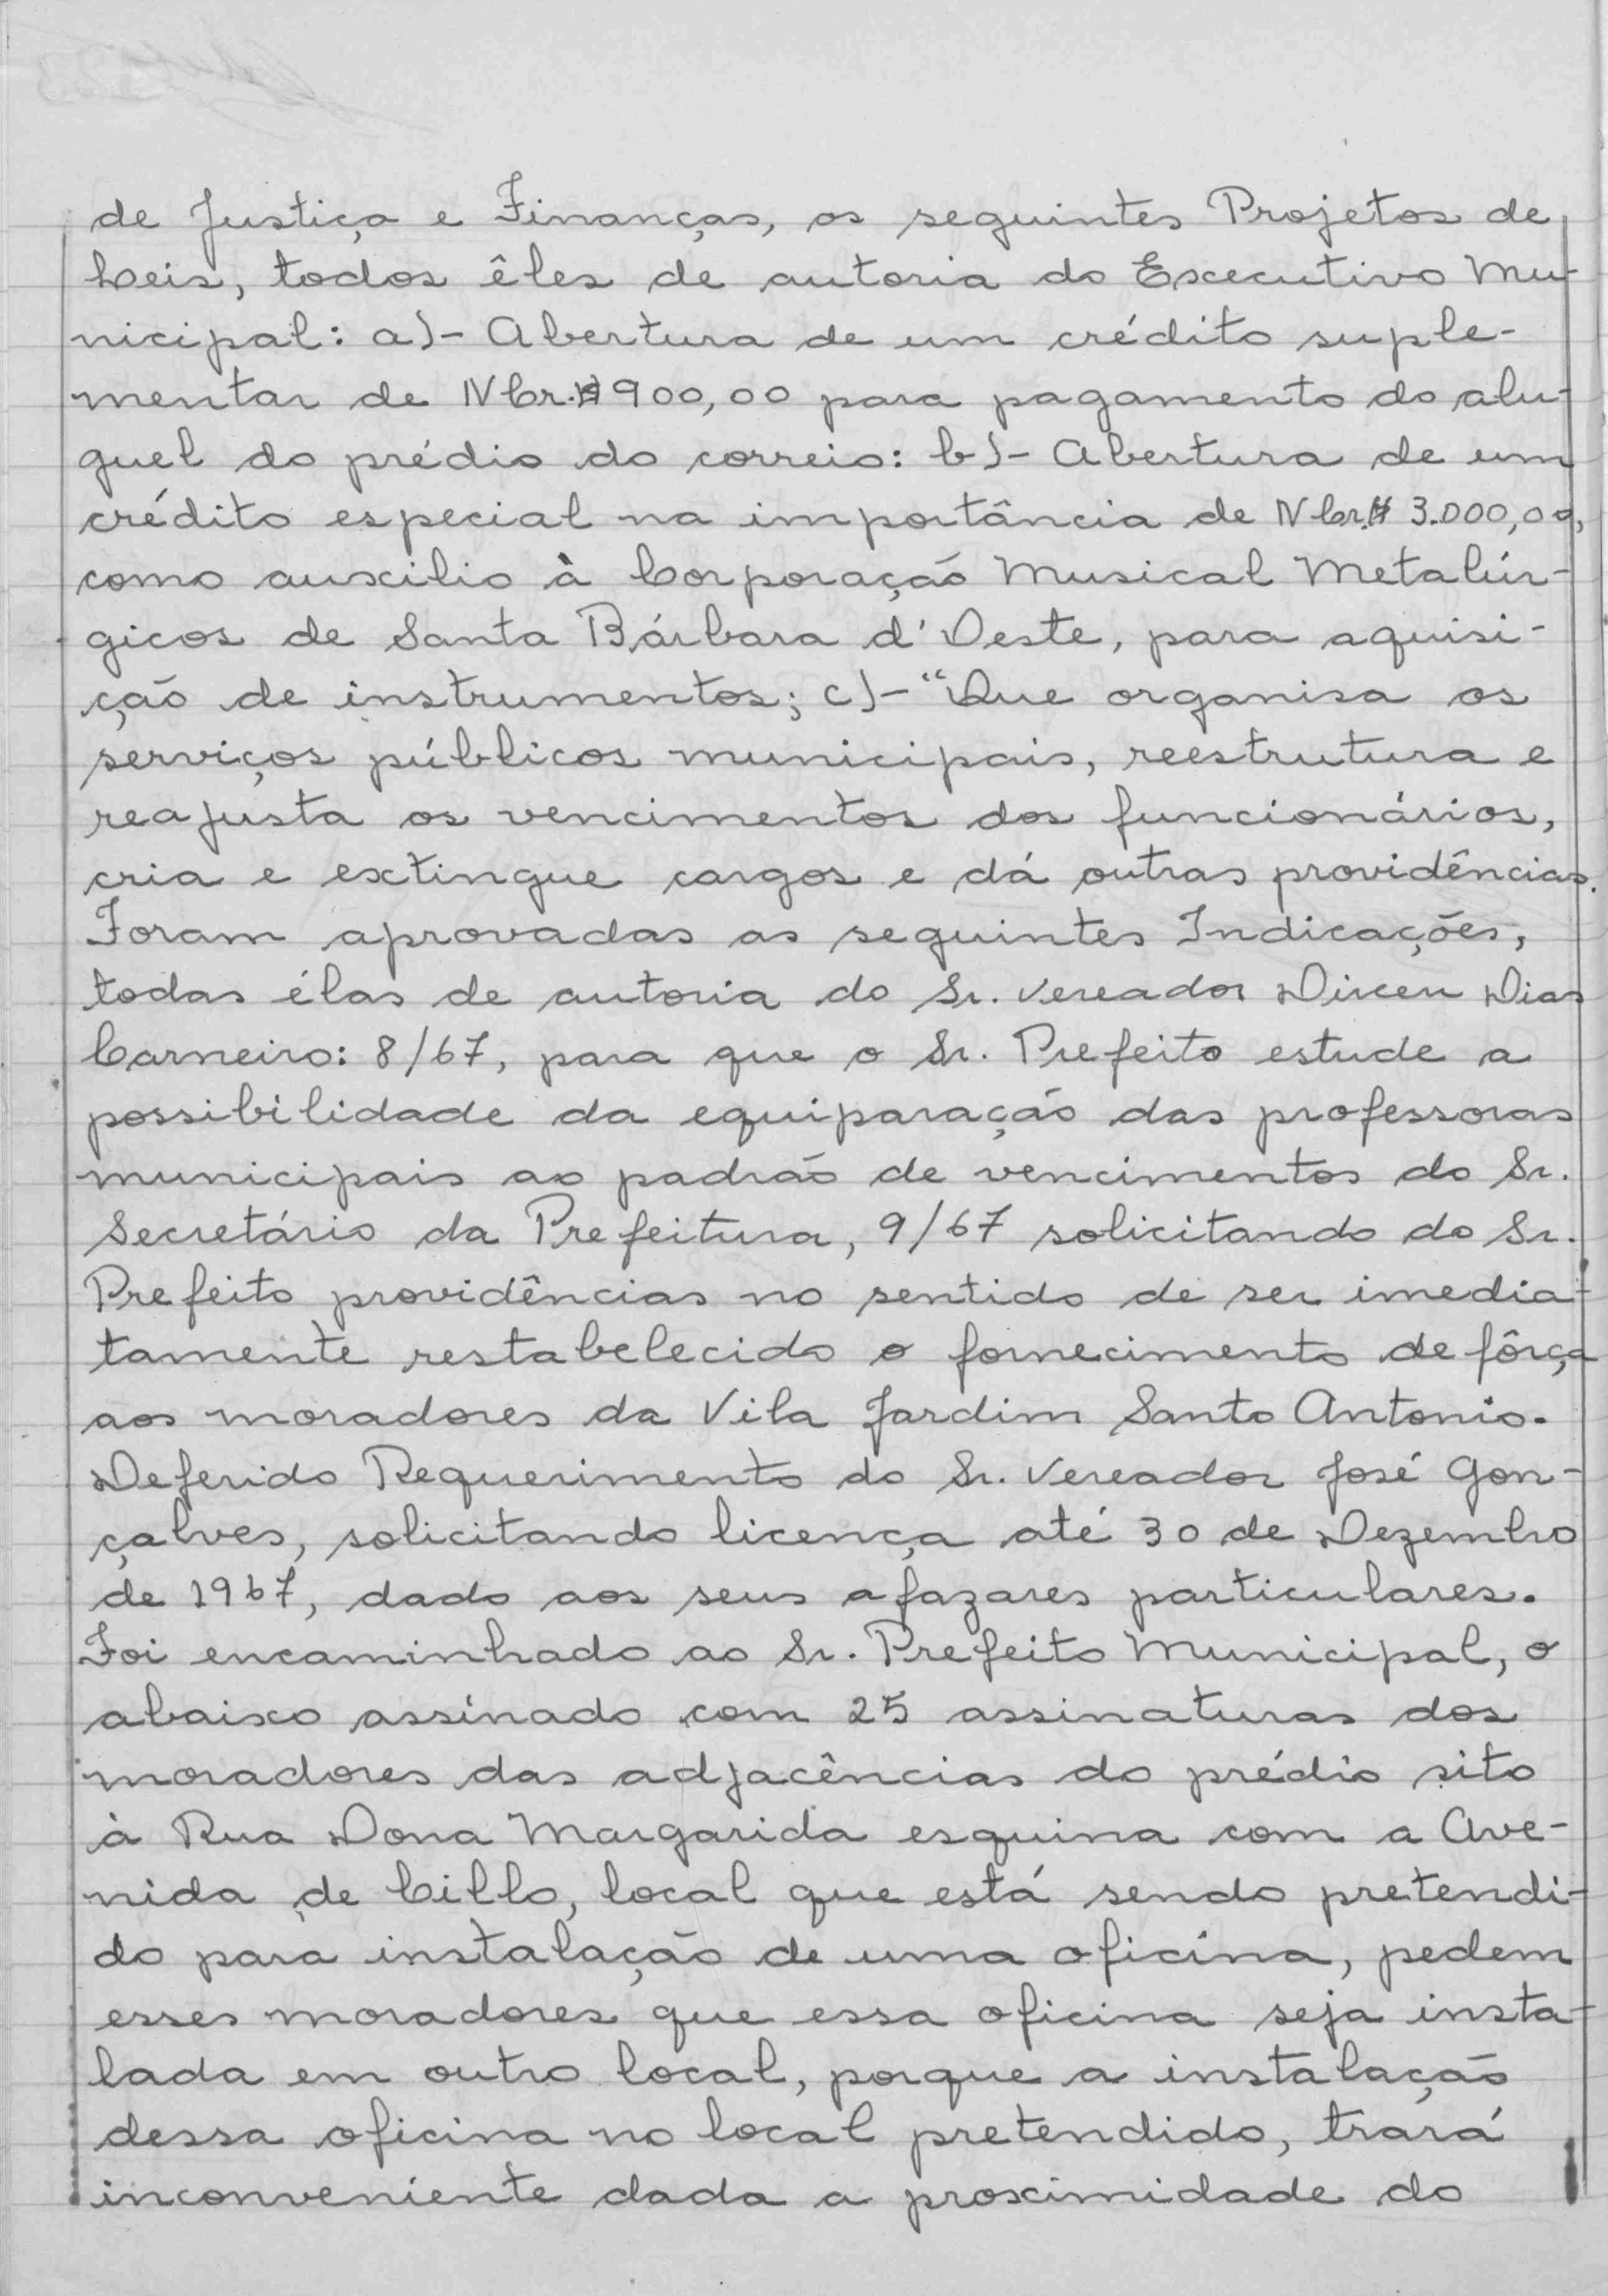 de Justiça e Finanças, os seguintes Projetos de
Leis, todos êles de autoria do Executivo Mu-
nicipal: a)- Abertura de um crédito suple-
mentar de NCr.$ 900,00 para pagamento do alu-
guel do prédio do correio: b)- Abertura de um
crédito especial na importância de NCr.$ 3.000,00,
como auxilio à Corporação Musical Metalúr-
gicos de Santa Bárbara d'Oeste, para aquisi-
ção de instrumentos; c)- "Que organisa os
serviços públicos municipais, reestrutura e
reajusta os vencimentos dos funcionários,
cria e extingue cargos e dá outras providências.
Foram aprovadas as seguintes Indicações,
todas élas de autoria do Sr. Vereador Dirceu Dias
Carneiro: 8/67, para que o Sr. Prefeito estude a
possibilidade da equiparação das professoras
municipais ao padrão de vencimentos do Sr.
Secretário da Prefeitura, 9/67 solicitando do Sr.
Prefeito providências no sentido de ser imedia-
tamente restabelecido o fornecimento de fôrça
aos moradores da Vila Jardim Santo Antonio.
Deferido Requerimento do Sr. Vereador José Gon-
çalves, solicitando licença até 30 de Dezembro
de 1967, dado aos seus afazares particulares.
Foi encaminhado ao Sr. Prefeito Municipal, o
abaixo assinado com 25 assinaturas dos
moradores das adjacências do prédio sito
à Rua Dona Margarida esquina com a Ave-
nida de Cillo, local que está sendo pretendi-
do para instalação de uma oficina, pedem
esses moradores que essa oficina seja insta-
lada em outro local, porque a instalação
dessa oficina no local pretendido, trará
inconveniente dada a proximidade do